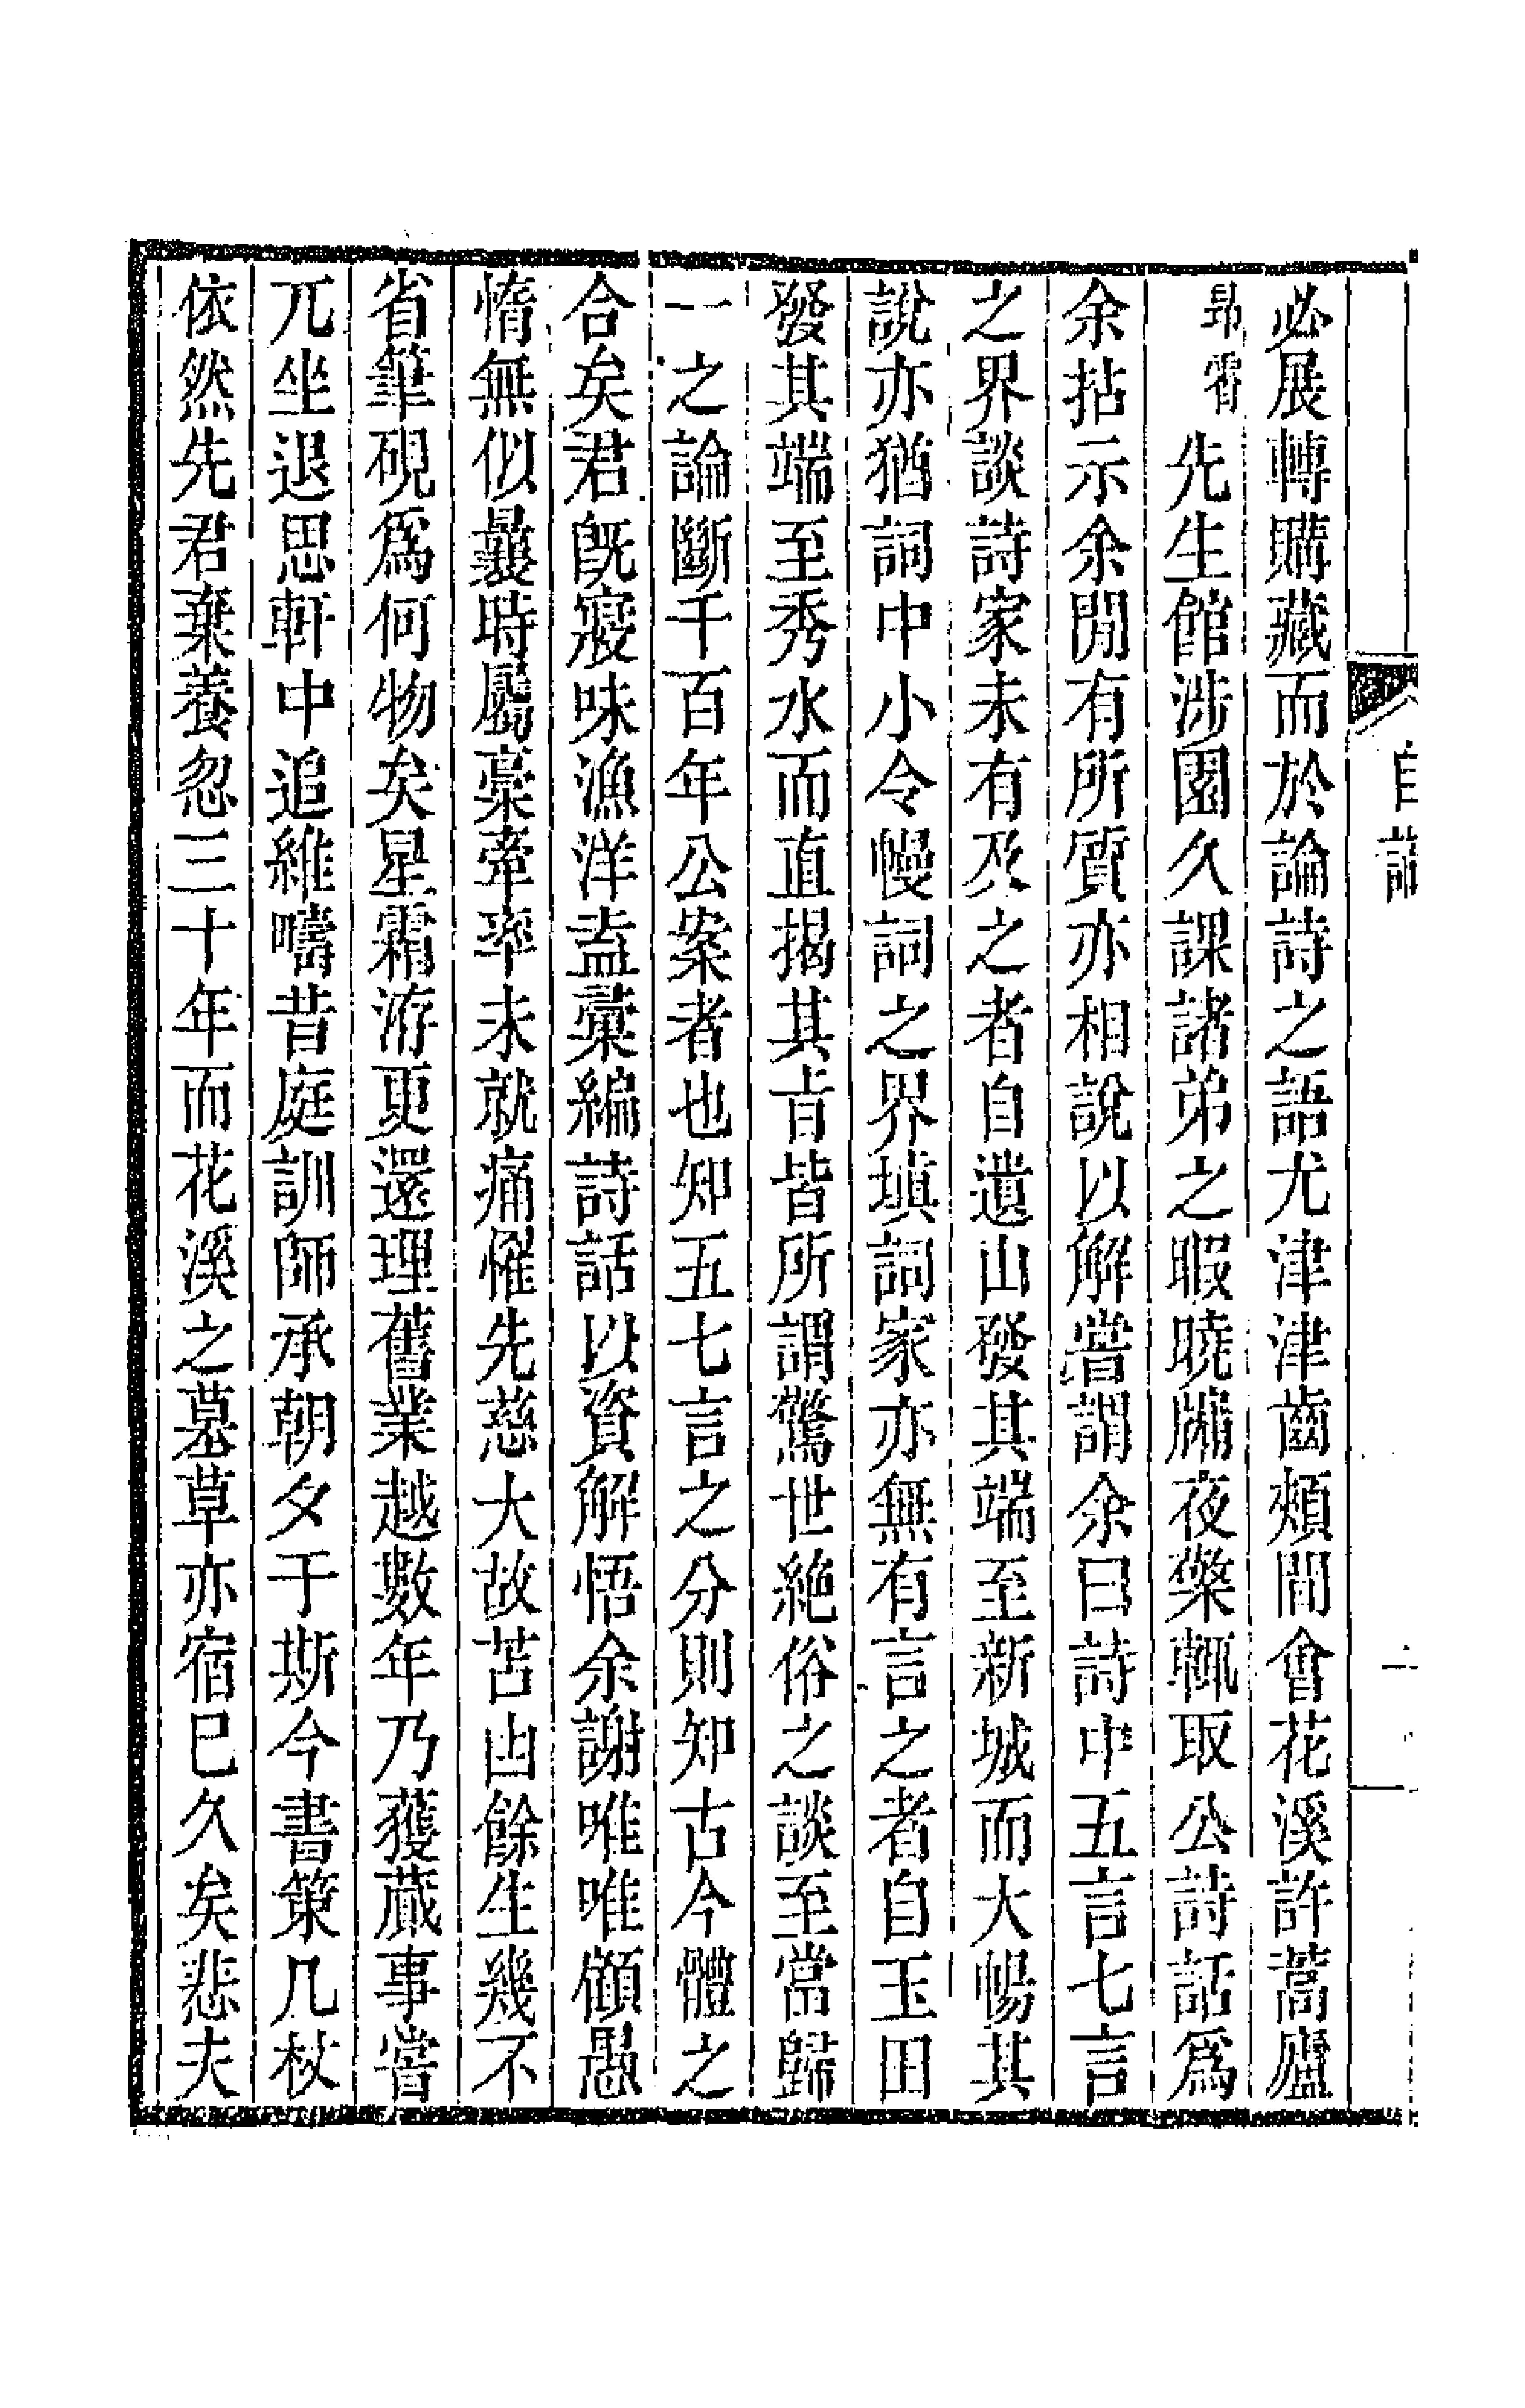 必展轉購藏而於論詩之語尤津津齒頰間會花溪許蒿廬
昂霄先生館涉園久課諸弟之暇曉牕夜檠輒取公詩話爲
余拈示余閒有所質亦相說以解嘗謂余曰詩中五言七言
之界談詩家未有及之者自遺山發其端至新城而大暢其
說亦猶詞中小令慢詞之界塡詞家亦無有言之者自玉田
發其端至秀水而直揭其旨皆所謂驚世絶俗之談至當歸
一之論斷千百年公案者也知五七言之分則知古今體之
合矣君旣寢味漁洋盍彙編詩話以資解悟余謝唯唯顧愚
惰無似曩時屬稾牽率未就痛罹先慈大故苫凷餘生幾不
省筆硯爲何物矣星霜洊更還理舊業越數年乃獲蕆事嘗
兀坐退思軒中追維疇昔庭訓師承朝夕于斯今書策几杖
依然先君棄養忽三十年而花溪之墓草亦宿已久矣悲夫
自
一